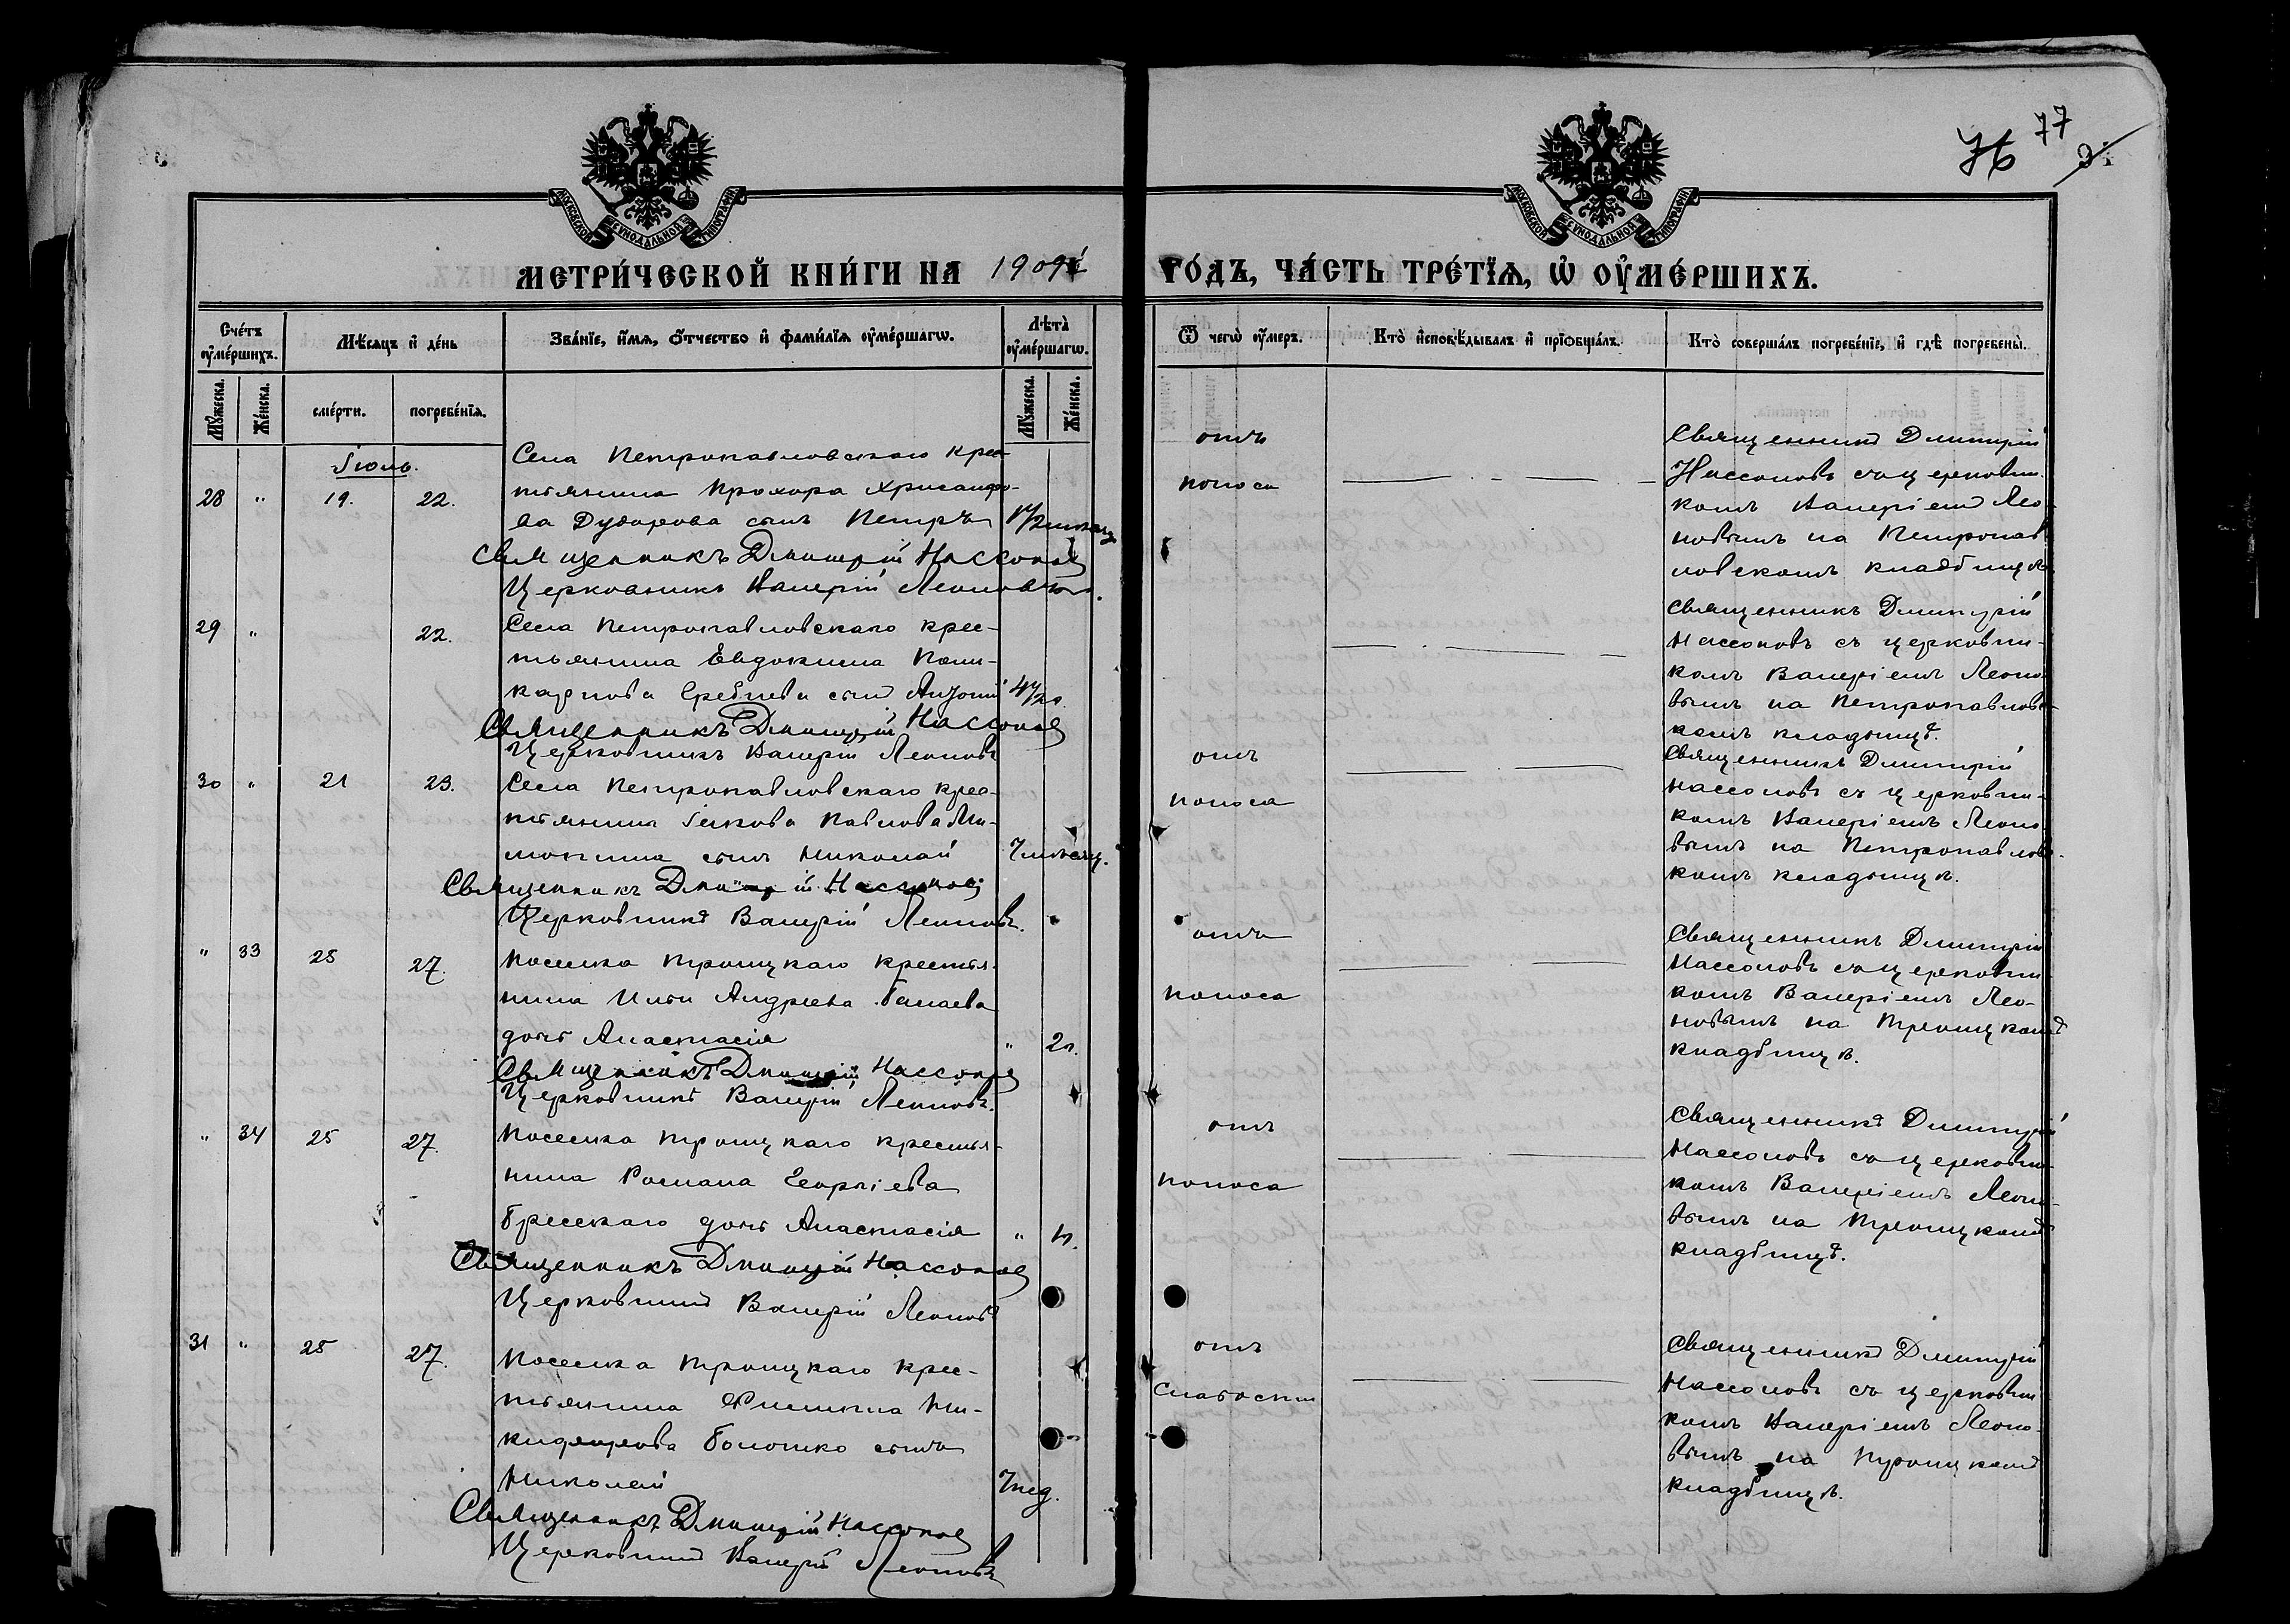 76 77
МОСКОВСКОЙ СѴНОДАЛЬНОЙ ТИПОГРАФІИ
МОСКОВСКОЙ СѴНОДАЛЬНОЙ ТИПОГРАФІИ
МЕТРИ́ЧЕСКОЙ КНИ́ГИ НА 1909й
ГО́ДЪ, ЧА́СТЬ ТРЕ́ТІѦ, Ѡ ОУМЕ́РШИХЪ.
Сче́тъ оумершихъ.
Мѣ́сяцъ и де́нь
Зва́нїе, и́мѧ, о́тчество и фами́лїѧ оуме́ршагѡ.
Лѣта̀ оуме́ршагѡ.
Ѿ чегѡ̀ оу́меръ.
Кто̀ исповѣ́дывалъ и прїѡбща́лъ.
Кто̀ соверша́лъ погребе́нїе, и гдѣ̀ погребены̀.
Мꙋ́жеска.
Же́нска.
сме́рти.
погребе́нїѧ.
Мꙋ́жеска.
Же́нска.
Іюль.
28 " 19. 22.
Села Петропавловскаго крес-
тьянина Прохора Хрисанфо-
ва Дударева сынъ Петръ
Священникъ Димитрій Нассоновъ
Церковникъ Валерій Леоновъ.
отъ
поноса
Священникъ Димитрій
Нассоновъ съ церковни-
комъ Валеріемъ Лео-
новымъ на Петропав-
ловскомъ кладбищѣ.
29 " 22.
Села Петропавловскаго крес-
тьянина Евдокима Поли-
карпова сынъ
Священникъ Димитрій Нассоновъ
Церковникъ Валерій Леоновъ
Священникъ Димитрій
Нассоновъ съ церковни-
комъ Валеріемъ Леоно-
вымъ на Петропавловс-
комъ кладбищѣ.
30 " 21 23.
Села Петропавловскаго крес-
тьянина Іякова Павлова
сынъ Николай 7 мѣсяц.
Священникъ Димитрій Нассоновъ
Церковникъ Валерій Леоновъ.
отъ
поноса
Священникъ Димитрій
Нассоновъ съ церковни-
комъ Валеріемъ Леоно-
вымъ на Петропавловс-
комъ кладбищѣ.
" 33 25 27.
Поселка Троицкаго крестья-
нина Ильи Андреева
дочь Анастасія " 2 л.
Священникъ Димитрій Нассоновъ
Церковникъ Валерій Леоновъ.
отъ
поноса
Священникъ Димитрій
Нассоновъ съ церковни-
комъ Валеріемъ Лео-
новымъ на Троицкомъ
кладбищѣ.
" 34 25 27.
Поселка Троицкаго крестья-
нина Романа Георгіева
дочь Анастасія "
Священникъ Димитрій Нассоновъ
Церковникъ Валерій Леоновъ
отъ
поноса
Священникъ Димитрій
Нассоновъ съ церковни-
комъ Валеріемъ Леоно-
вымъ на Троицкомъ
кладбищѣ.
31 " 25 27.
Поселка Троицкаго крес-
тьянина Филиппа Ни-
кифорова Болотко сынъ
Николай 7 нед.
Священникъ Димитрій Нассоновъ
Церковникъ Валерій Леоновъ
отъ
слабости
Священникъ Димитрій
Нассоновъ съ церковни-
комъ Валеріемъ Леоно-
вымъ на Троицкомъ
кладбищѣ.